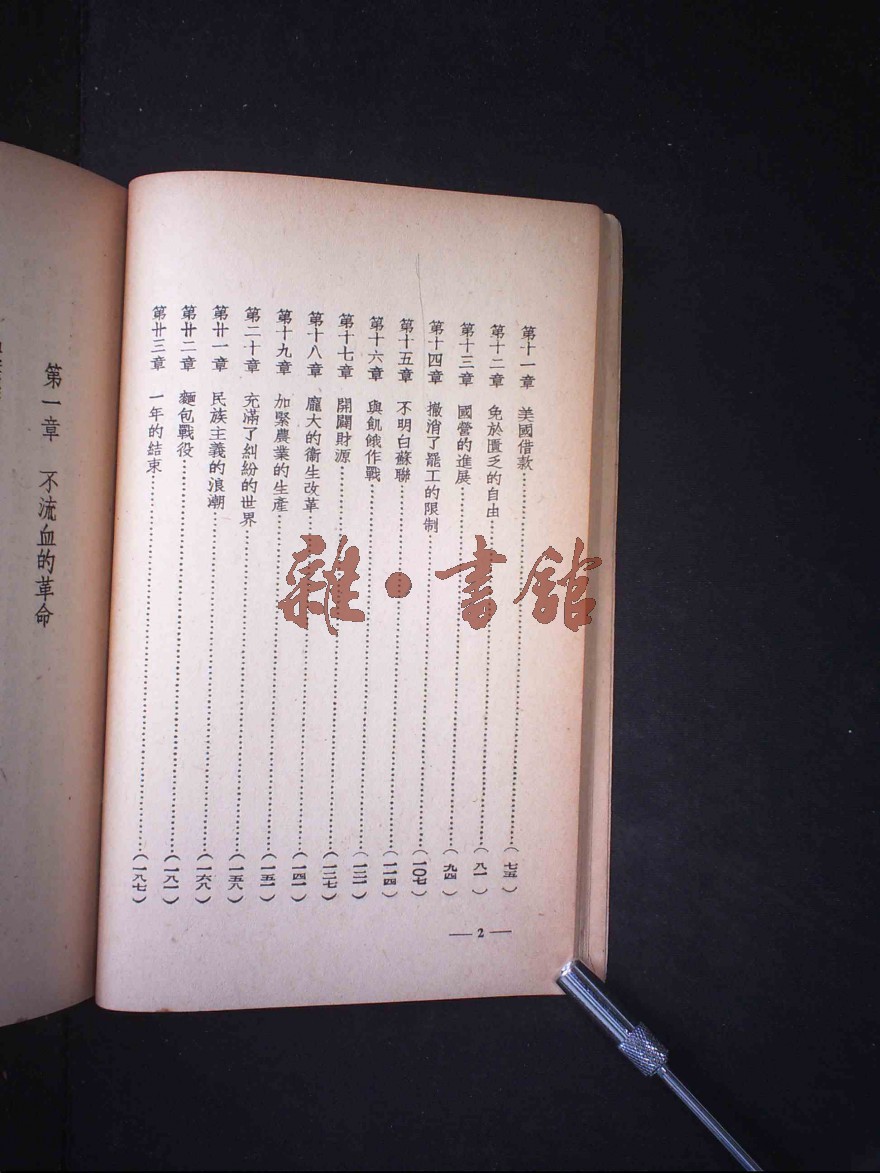 第十一章　美國借款…………（七五）
第十二章　免於匱乏的自由…………（八一）
第十三章　國營的進展…………（九四）
第十四章　撤消了罷工的限制…………（一〇七）
第十五章　不明白蘇聯…………（一一四）
第十六章　與飢餓作戰…………（一三一）
第十七章　開闢財源…………（一三七）
第十八章　龐大的衛生改革…………（一四一）
第十九章　加緊農業的生產…………（一五一）
第二十章　充滿了糾紛的世界…………（一五八）
第廿一章　民族主義的浪潮…………（一六八）
第廿二章　麵包戰役…………（一八一）
第廿三章　一年的結束…………（一八七）
— 2 —
第一章　不流血的革命
雜・書館